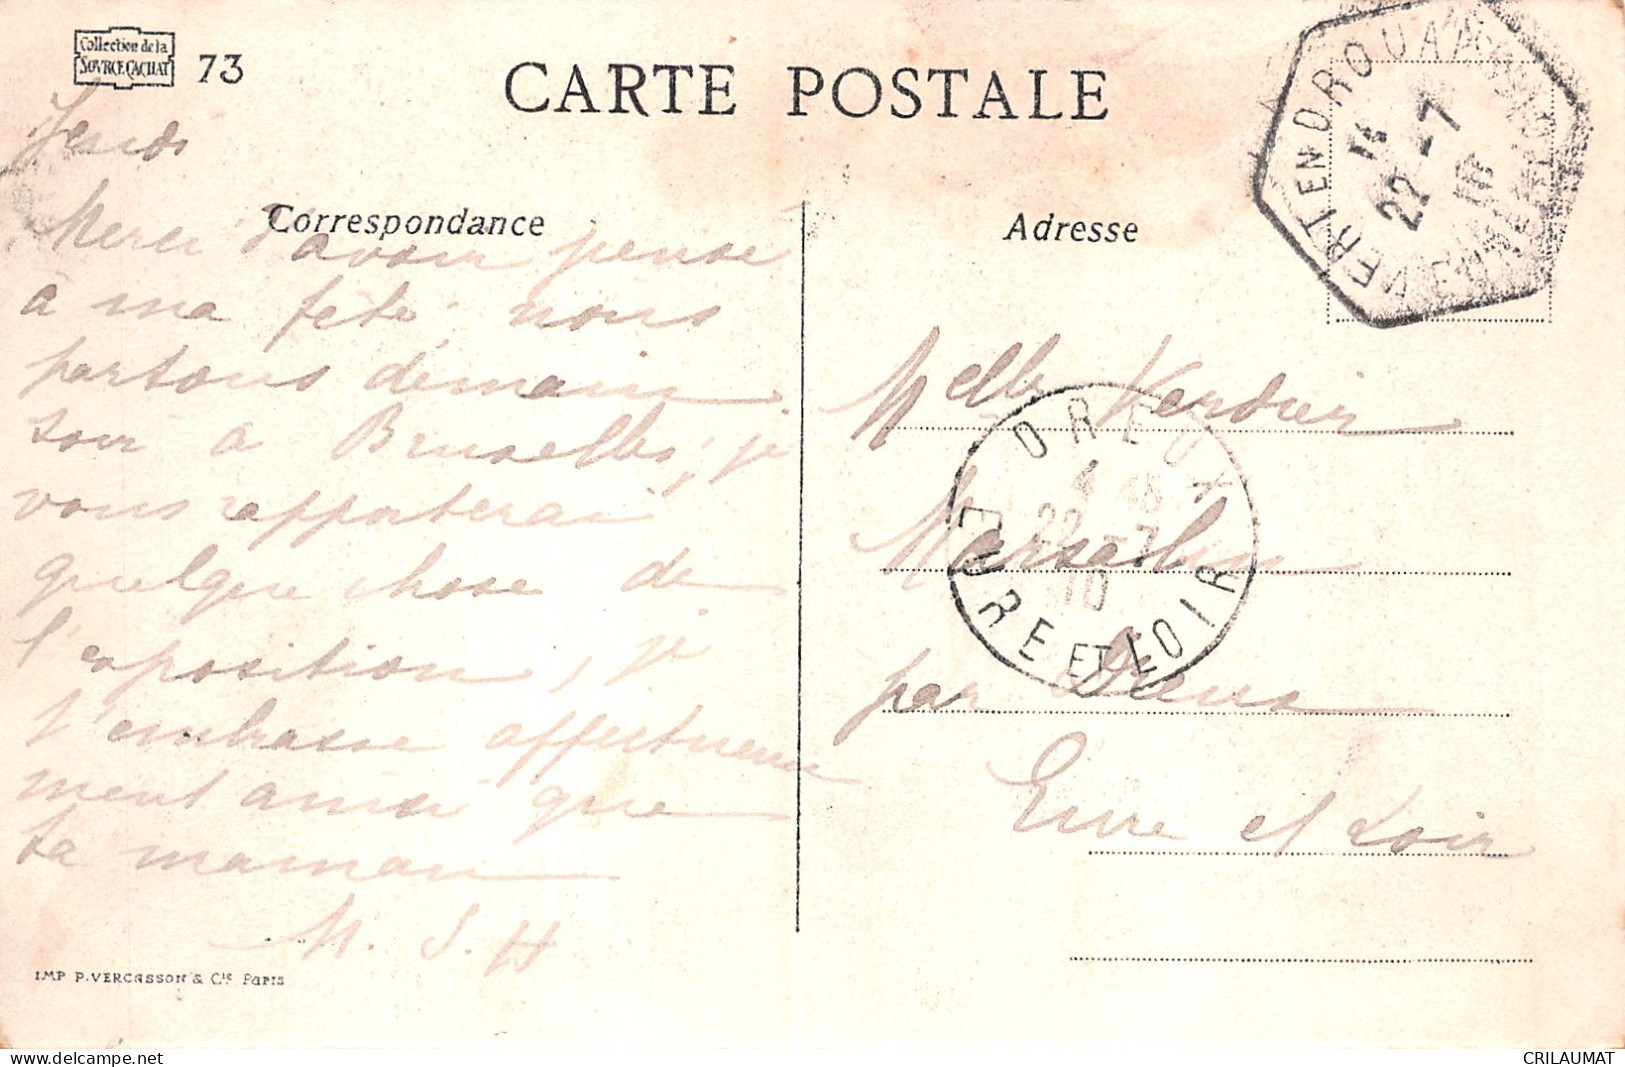 Collection de la
SOVRCE CACHAT
73
CARTE POSTALE
Correspondance
Adresse
Jeudi
Merci d'avoir pensé
à ma fête nous
partons demain
soir à Bruxelles, je
vous rapporterai
quelque chose de
l'exposition, je
t'embrasse affectueuse
ment ainsi que
ta maman
M. J. H
Melle Verdier
par Dreux
Eure et Loir
VERT EN DROUAIS
22 -7
10
EURE ET LOIR
DREUX
4 45
22 -7
10
EURE ET LOIR
IMP P. VERCASSON & Cie PARIS
delcampe.net
CRILAUMAT